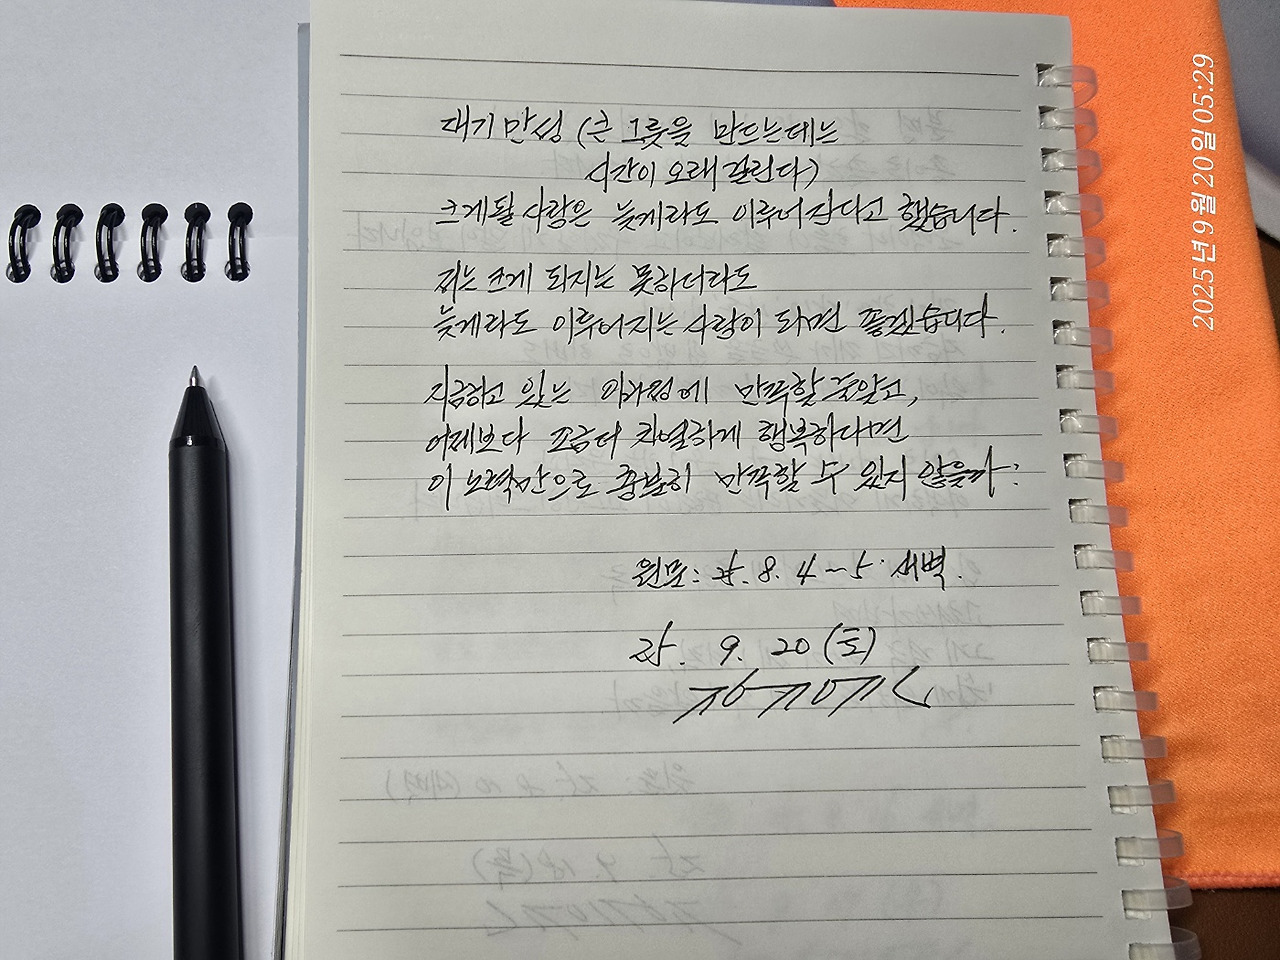 대기만성 (큰 그릇을 만드는데는
시간이 오래 걸린다)
크게될 사람은 늦게라도 이루어진다고 했습니다.
저는 크게 되지는 못하더라도
늦게라도 이루어지는 사람이 되면 좋겠습니다.
지금하고 있는 이과정에 만족할줄알고,
어제보다 조금더 치열하게 행복하다면
이 노력만으로 충분히 만족할 수 있지 않을까?
원문: 25. 8. 4~5. 새벽.
25. 9. 20 (토)
2025년 9월 20일 05:29